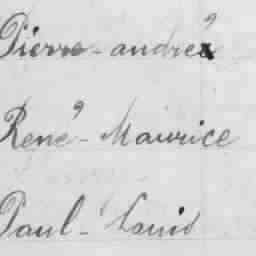 Pierre-andré
René-Maurice
Paul-Louis